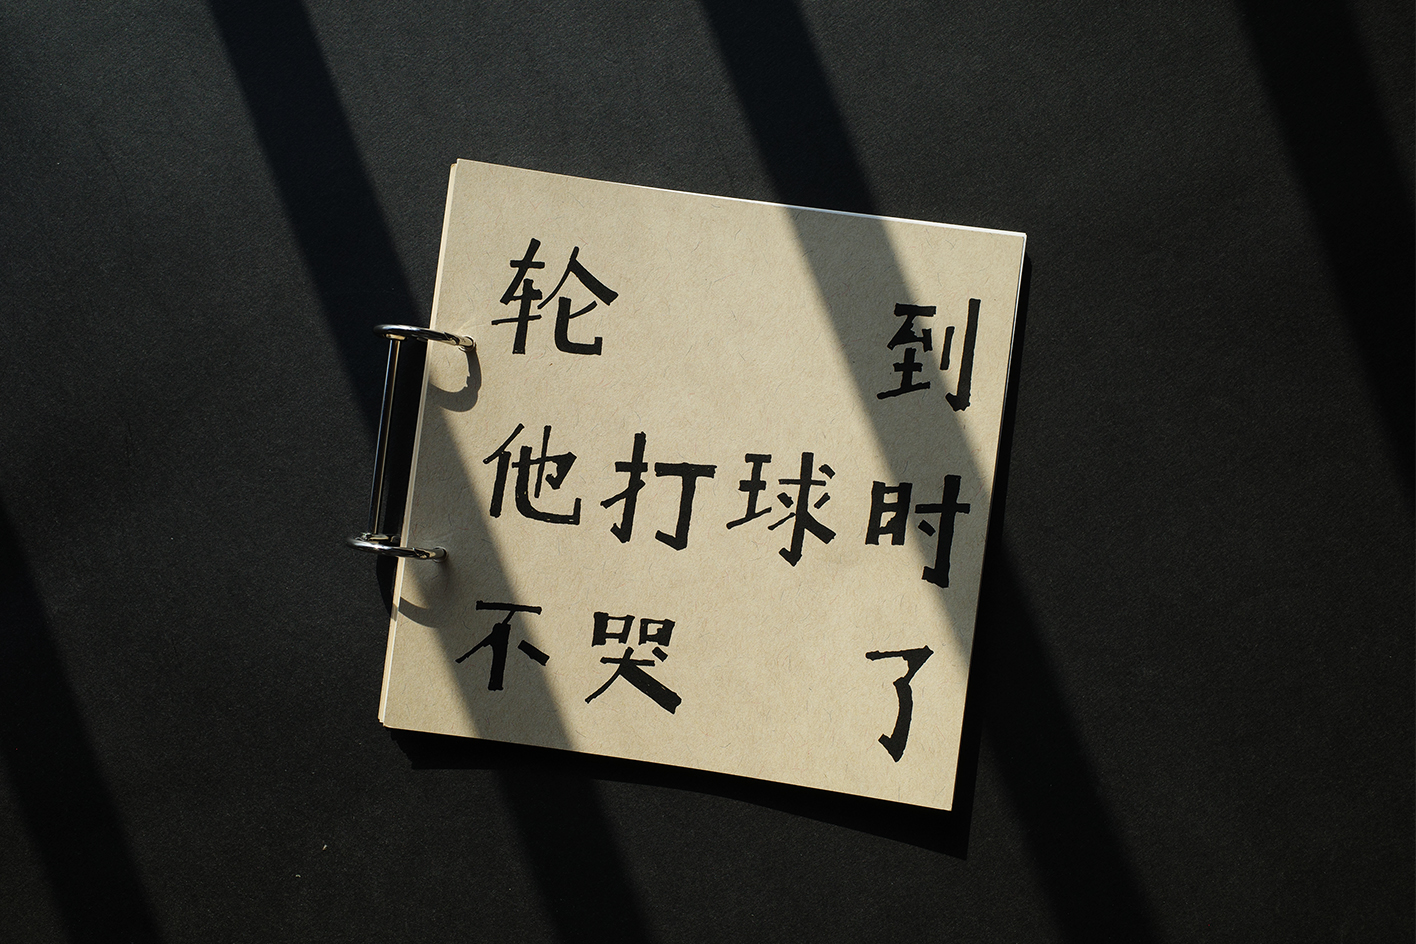 轮 到
他打球时
不哭 了